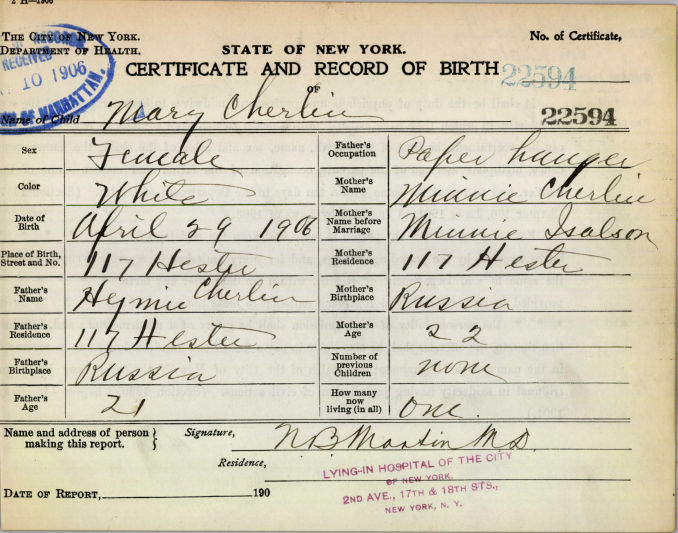 2 H—1906
THE CITY OF NEW YORK.
DEPARTMENT OF HEALTH.
STATE OF NEW YORK.
No. of Certificate,
CERTIFICATE AND RECORD OF BIRTH
22594
OF
RECEIVED
10 1906
MANHATTAN.
Name of Child Mary Cherlin
22594
Sex Female
Father's Occupation Paper hanger
Color White
Mother's Name Minnie Cherlin
Date of Birth April 29 1906
Mother's Name before Marriage Minnie Isalson
Place of Birth, Street and No. 117 Hester
Mother's Residence 117 Hester
Father's Name Heymie Cherlin
Mother's Birthplace Russia
Father's Residence 117 Hester
Mother's Age 22
Father's Birthplace Russia
Number of previous Children none
Father's Age 21
How many now living (in all) one.
Name and address of person making this report. Signature, N B Martin M.D.
Residence,
LYING-IN HOSPITAL OF THE CITY
OF NEW YORK.
2ND AVE., 17TH & 18TH STS.,
NEW YORK, N. Y.
DATE OF REPORT, 190